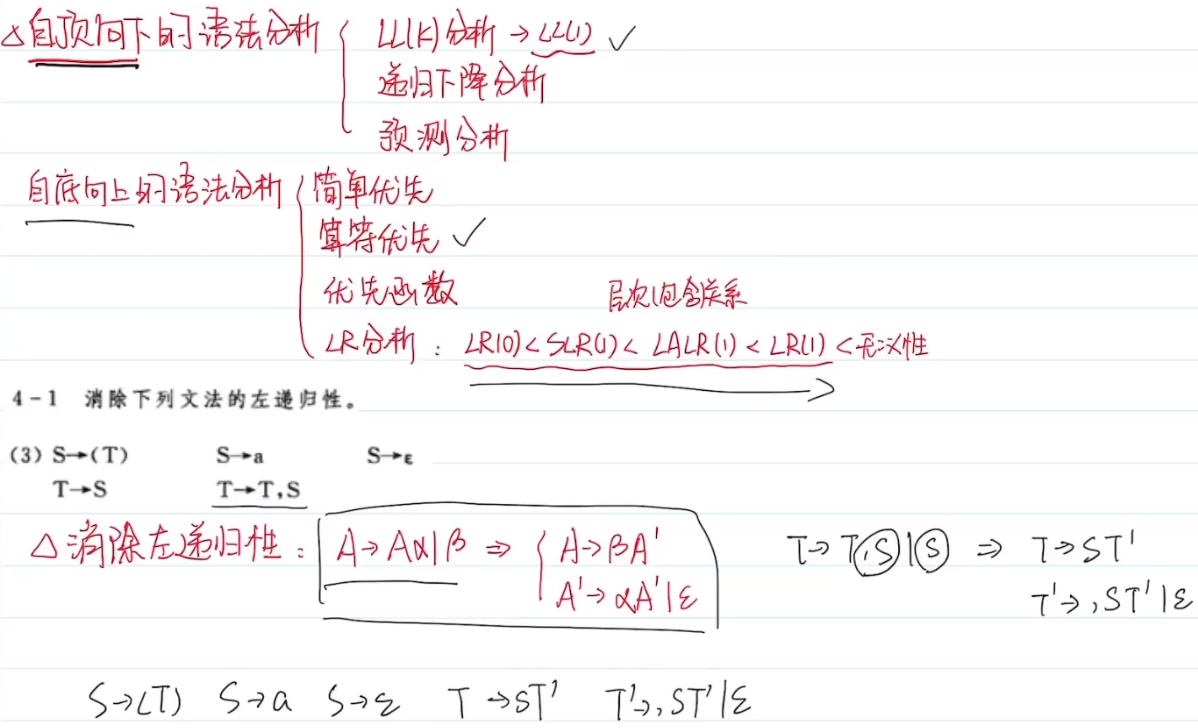 △自顶向下的语法分析 { LL(k)分析 → LL(1) ✓
递归下降分析
预测分析
自底向上的语法分析 { 简单优先
算符优先 ✓
优先函数
层次(包含关系
LR分析: LR(0) < SLR(1) < LALR(1) < LR(1) < 无二义性
4-1 消除下列文法的左递归性。
(3) S→(T) S→a S→ε
T→S T→T,S
△消除左递归性: A→Aα|β ⇒ { A→βA' T→T,S|S ⇒ T→ST'
A'→αA'|ε T'→,ST'|ε
S→(T) S→a S→ε T→ST' T'→,ST'|ε